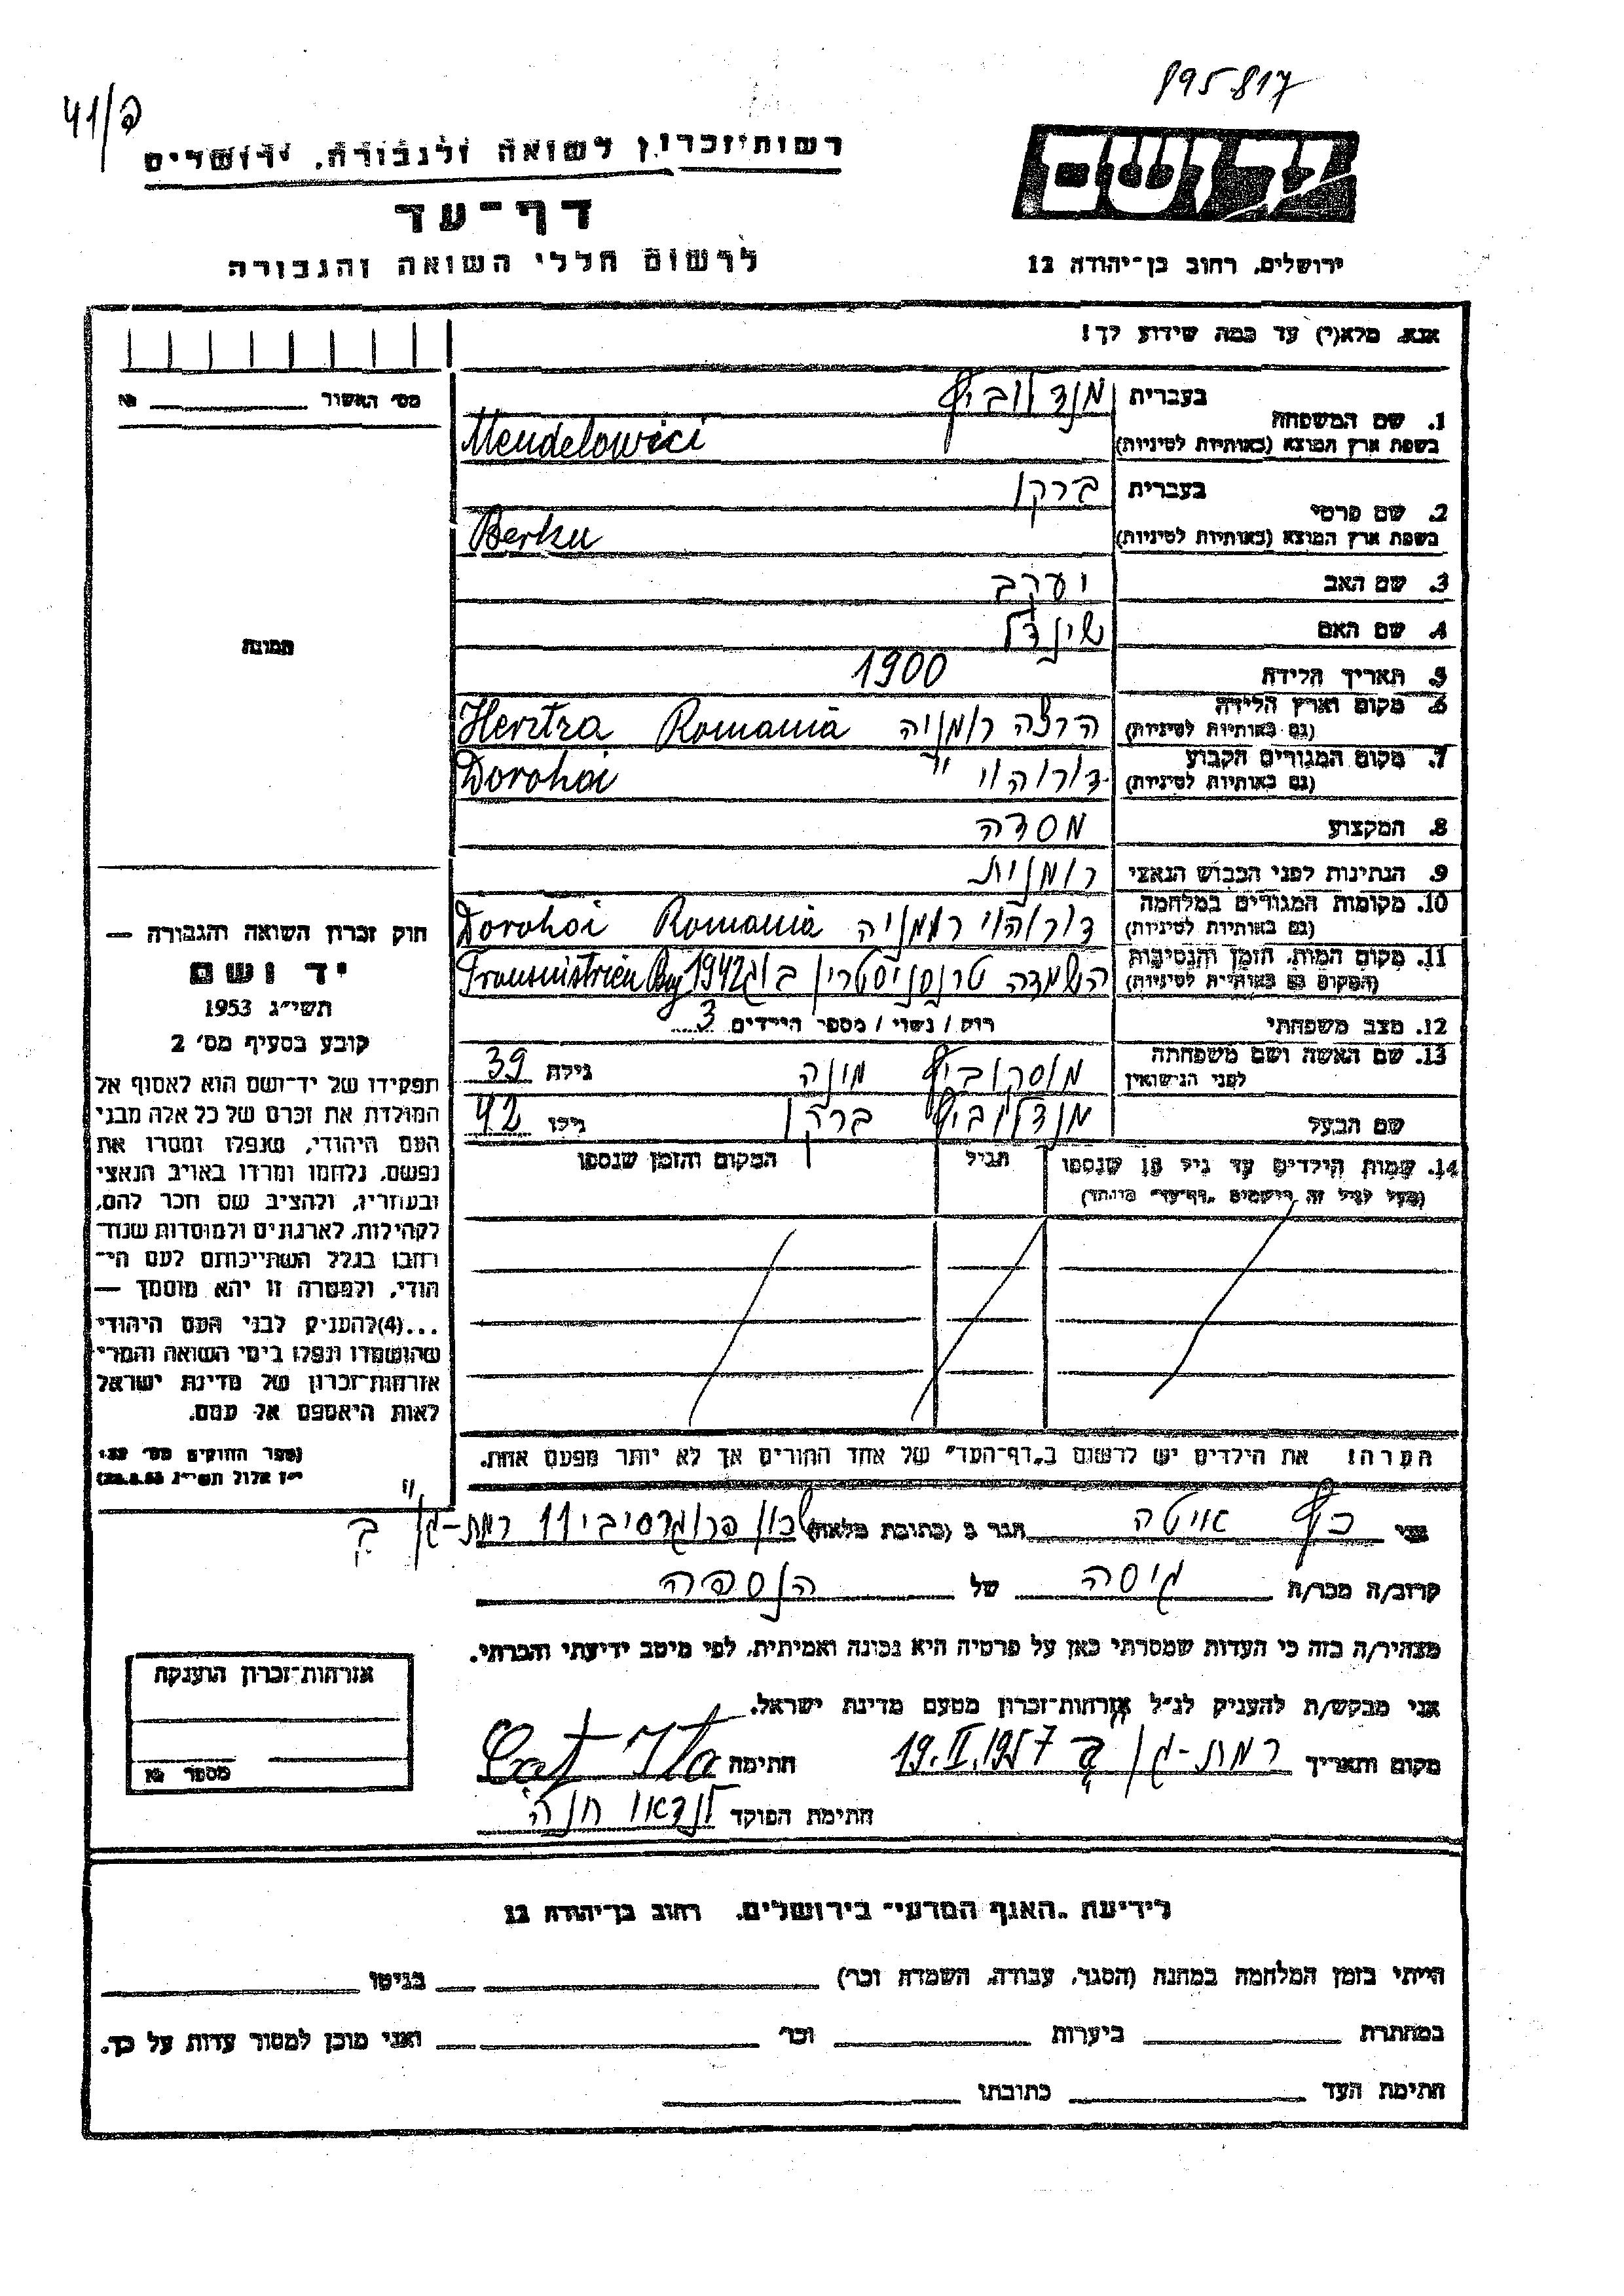 895817
41/פ
רשות־זכרון לשואה ולגבורה, ירושלים
דף־עד
לרשום חללי השואה והגבורה
יד ושם
ירושלים, רחוב בן־יהודה 12
אנא, מלא(י) עד כמה שידוע לך!
מס׳ האשור №
1. שם המשפחה בעברית מנדלוביץ
בשפת ארץ המוצא (באותיות לטיניות) Mendelowici
2. שם פרטי בעברית ברקו
בשפת ארץ המוצא (באותיות לטיניות) Berku
3. שם האב יעקב
4. שם האם שיינדל
תמונה
5. תאריך הלידה 1900
6. מקום וארץ הלידה (גם באותיות לטיניות) הרצה רומניה Romania Hertza
7. מקום המגורים הקבוע (גם באותיות לטיניות) דורוהוי " Dorohoi
8. המקצוע
9. הנתינות לפני הכבוש הנאצי רומנית
10. מקומות המגורים במלחמה (גם באותיות לטיניות) דורוהוי רומניה Romania Dorohoi
11. מקום המות, הזמן והנסיבות (המקום גם באותיות לטיניות) השמדה טרנסניסטרין בוג 1942 Bug Transnistrien
12. מצב משפחתי רוק / נשוי / מספר הילדים 3
13. שם האשה ושם משפחתה לפני הנישואין מוסקוביץ מונה גילה 39
שם הבעל מנדלוביץ ברקו גילו 42
14. שמות הילדים עד גיל 18 שנספו הגיל המקום והזמן שנספו
(מעל לגיל זה רושמים „דף־עד״ מיוחד)
הערה: את הילדים יש לרשום ב„דף־העד״ של אחד ההורים אך לא יותר מפעם אחת.
חוק זכרון השואה והגבורה —
יד ושם
תשי״ג 1953
קובע בסעיף מס׳ 2
תפקידו של יד־ושם הוא לאסוף אל
המולדת את זכרם של כל אלה מבני
העם היהודי, שנפלו ומסרו את
נפשם, נלחמו ומרדו באויב הנאצי
ובעוזריו, ולהציב שם וזכר להם,
לקהילות, לארגונים ולמוסדות שנח־
רבו בגלל השתייכותם לעם הי־
הודי, ולמטרה זו יהא מוסמך —
...(4)להעניק לבני העם היהודי
שהושמדו ונפלו בימי השואה והמרי
אזרחות־זכרון של מדינת ישראל
לאות היאספם אל עמם.
(ספר החוקים מס׳ 132
י״ז אלול תשי״ג 28.8.53)
אני כץ איטה הגר ב (כתובת מלאה) שכון פרוגרסיבי 11 רמת-גן ב׳
קרוב/ה מכר/ה גיסה של הנספה
מצהיר/ה בזה כי העדות שמסרתי כאן על פרטיה היא נכונה ואמיתית, לפי מיטב ידיעתי והכרתי.
אני מבקש/ת להעניק לנ״ל אזרחות־זכרון מטעם מדינת ישראל.
מקום ותאריך רמת-גן ב׳ 19.II.1957 חתימה Cat Ita
חתימת הפוקד לנדאו חנה
אזרחות־זכרון הוענקה
מספר №
לידיעת „האגף המדעי״ בירושלים, רחוב בן־יהודה 12
הייתי בזמן המלחמה במחנה (הסגר, עבודה, השמדה וכו׳) בגיטו
במחתרת ביערות וכו׳ ואני מוכן למסור עדות על כך.
חתימת העד כתובתו